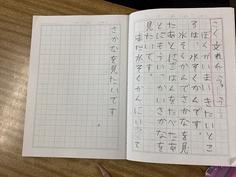 さく文れんしゅう
ぼくがいまいきたいとこ
ろは、水ぞくかんです。
水ぞくかんでさかなを見
たあとにごはんをたべたあ
とにもういっかいさかなを
見たいです。
また水ぞくかんにいって
さかなを見たいです